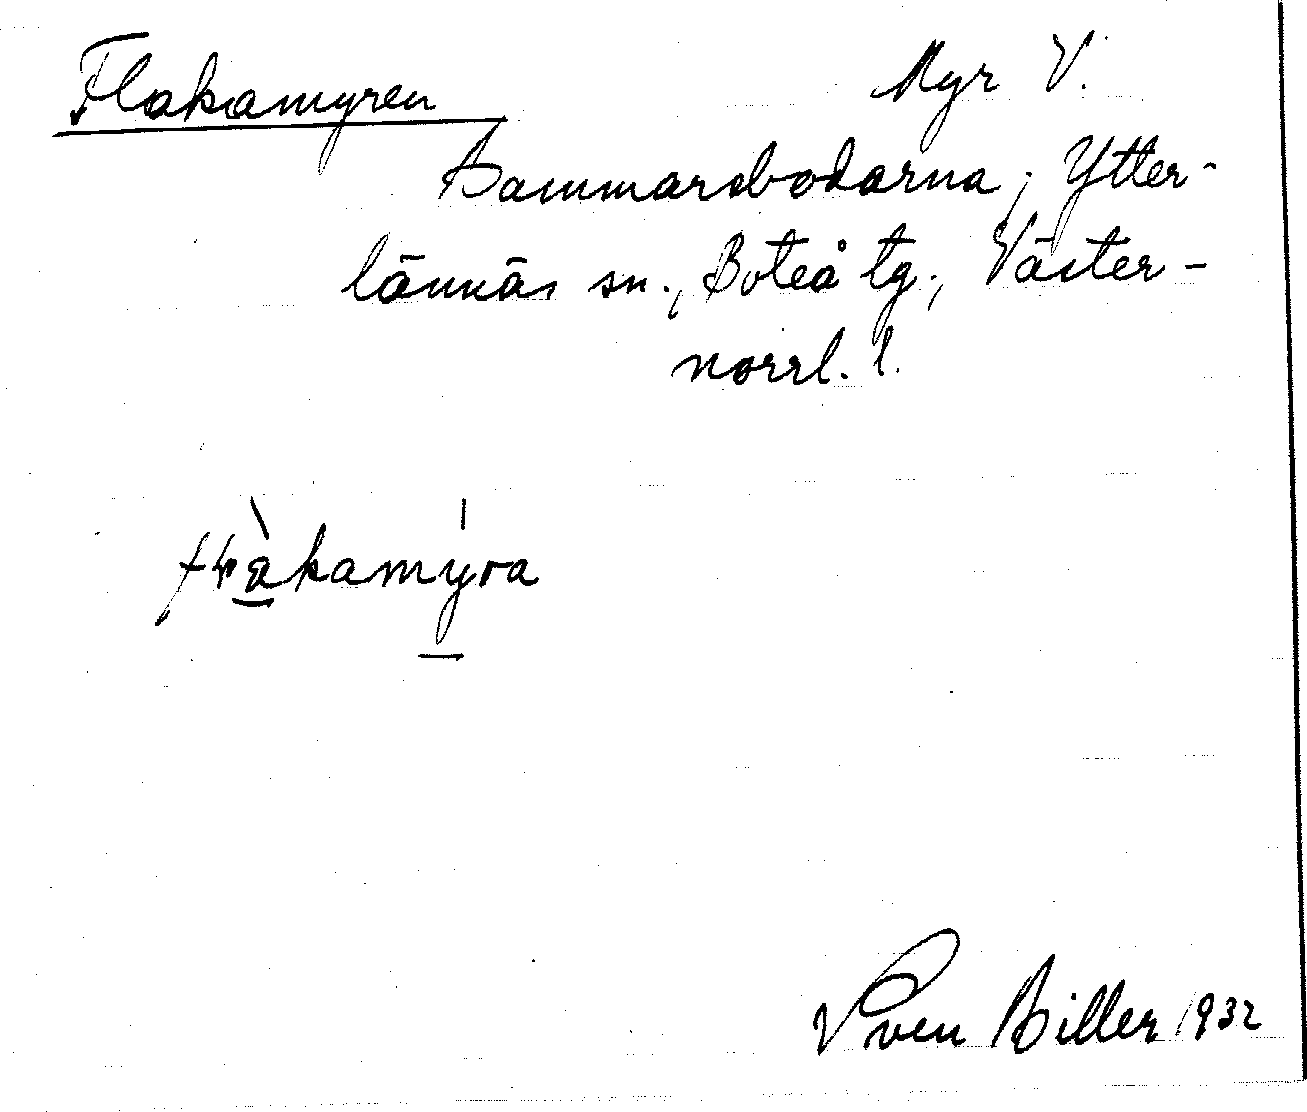 Flakamyren Myr V.
Sammarsbodarna, Ytter-
lännäs sn., Boteå tg., Väster-
norrl. l.
Sven Biller 1932